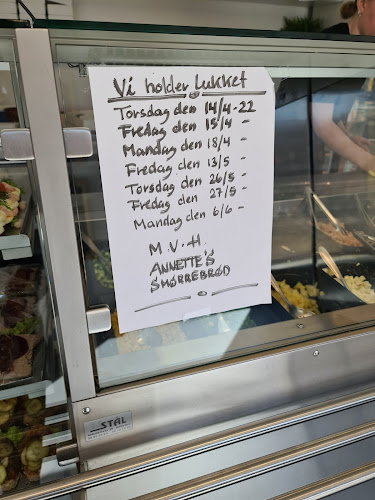 Vi holder Lukket
Torsdag den 14/4-22
Fredag den 15/4 -
Mandag den 18/4 -
Fredag den 13/5 -
Torsdag den 26/5 -
Fredag den 27/5 -
Mandag den 6/6 -
M.V.H.
ANNETTE'S
SMØRREBRØD
STÅL